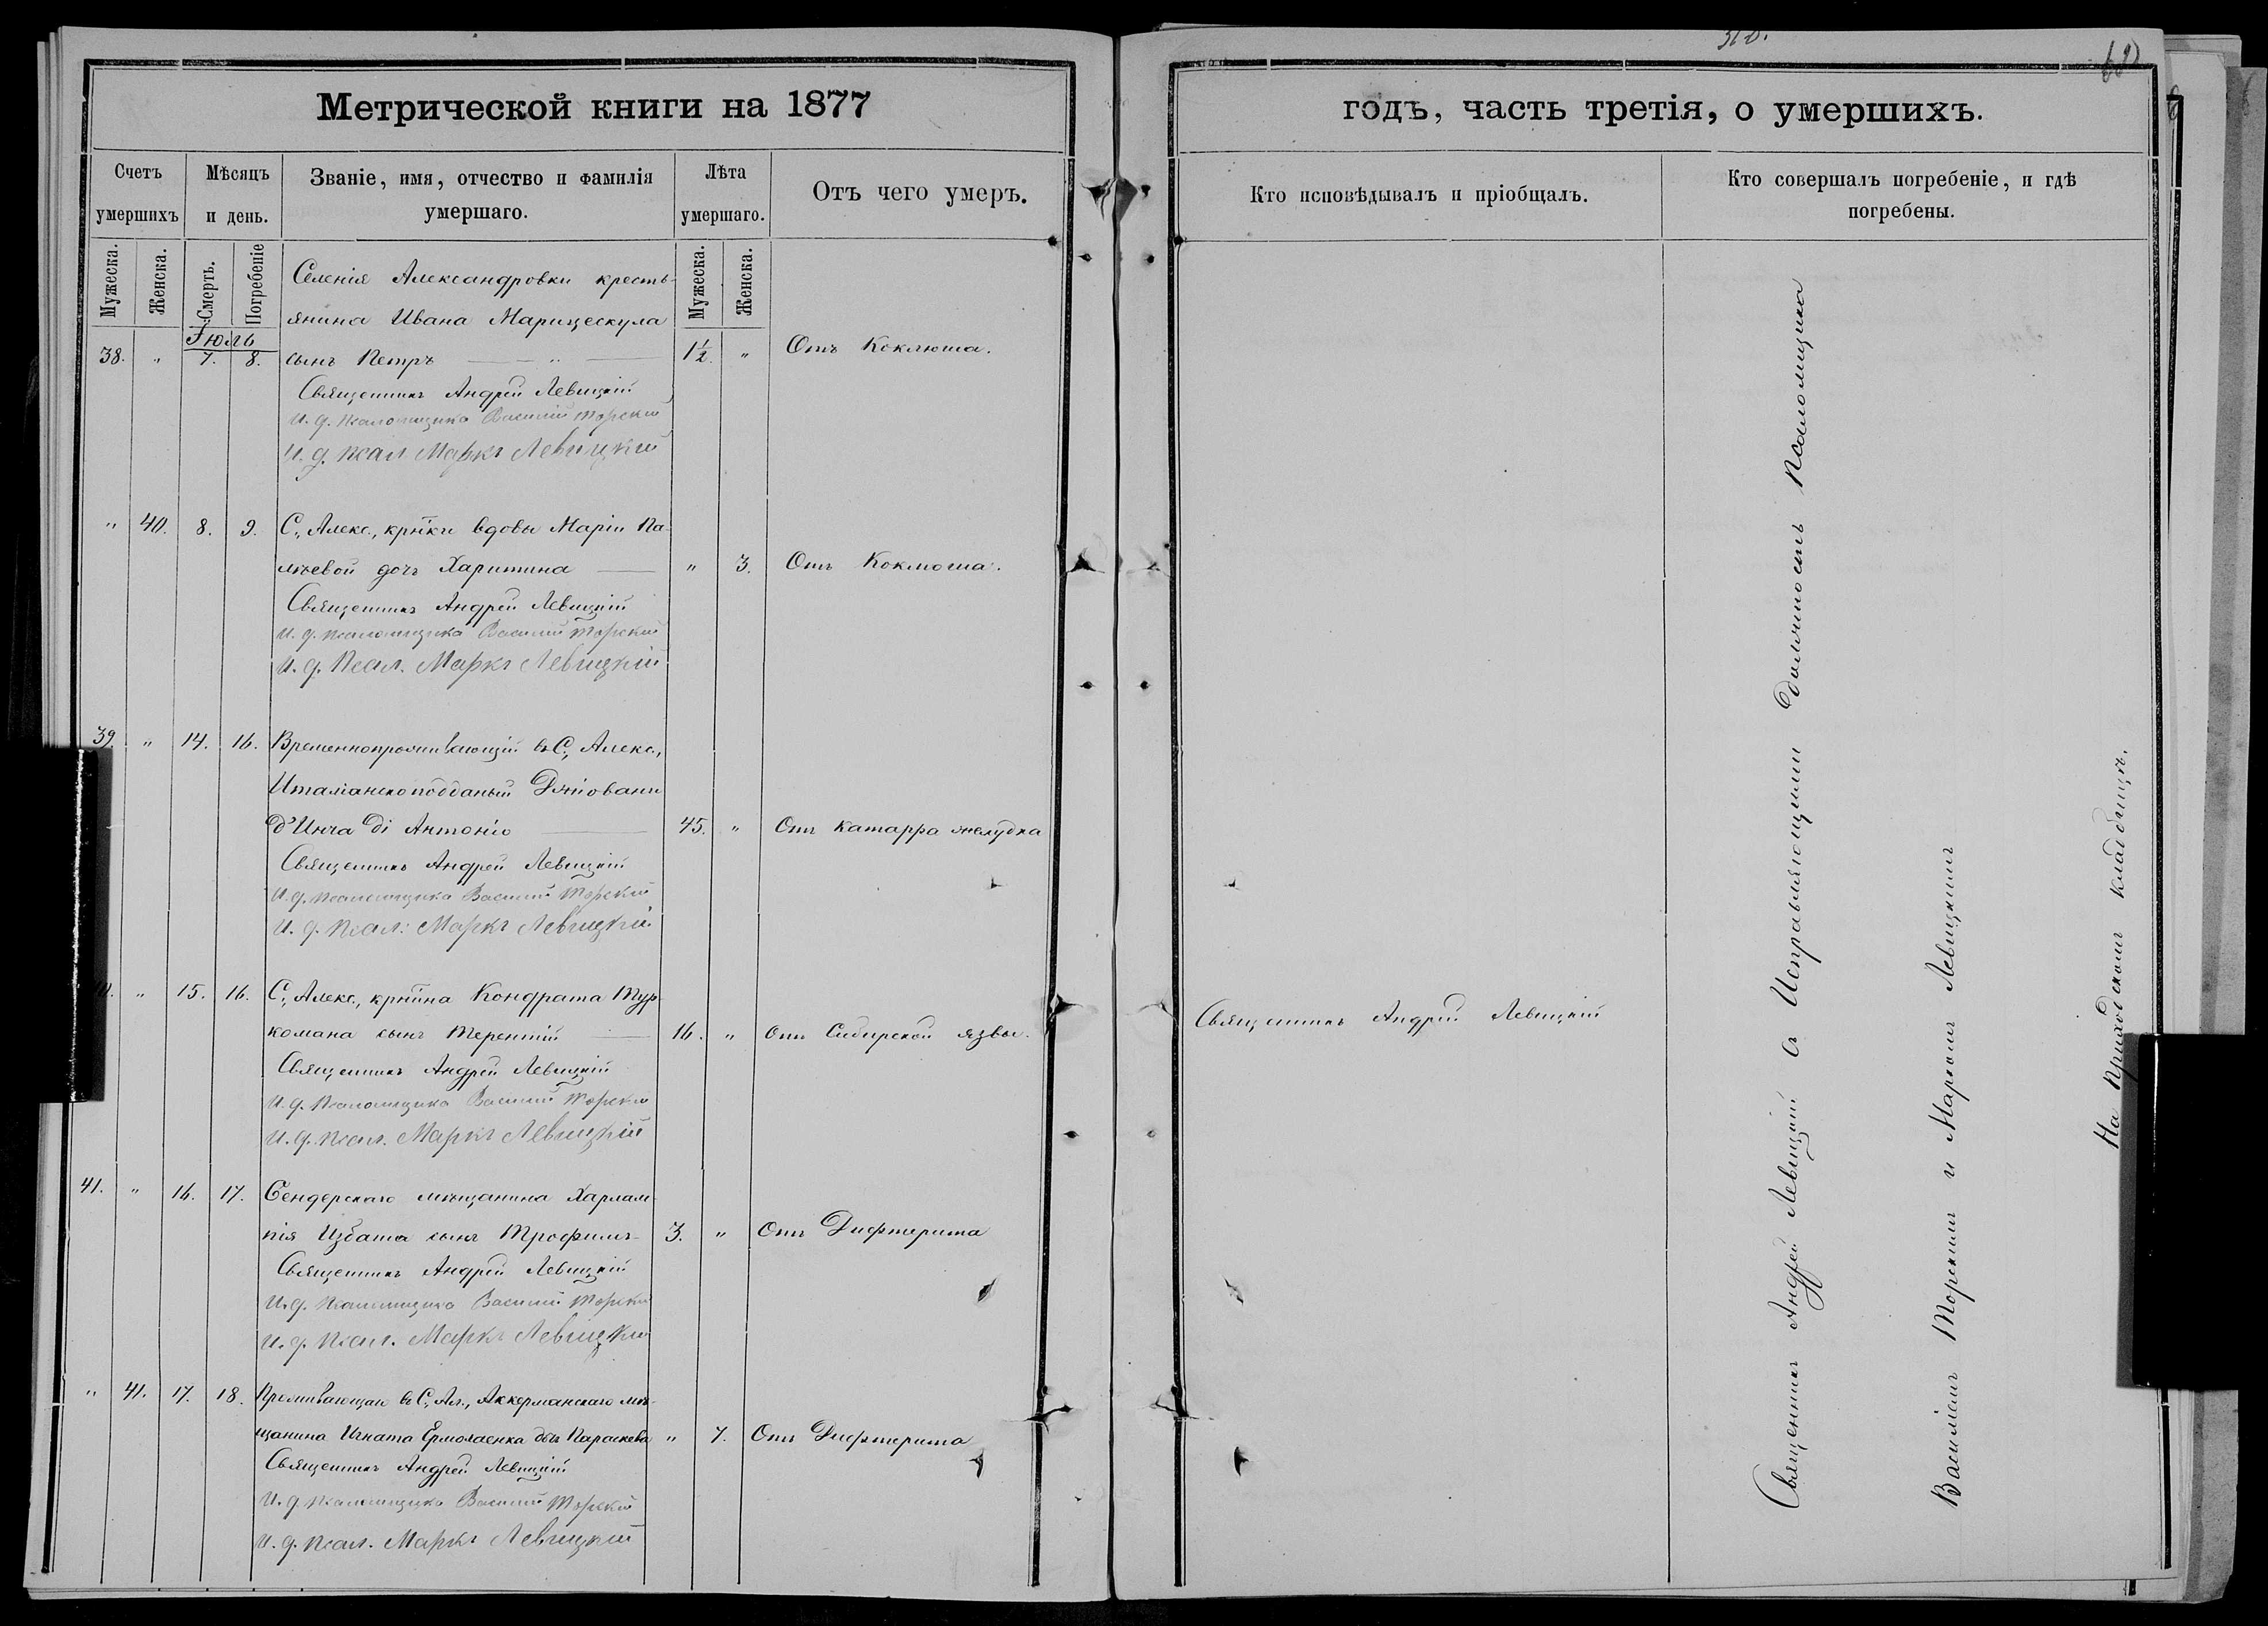 Метрической книги на 1877
Счетъ умершихъ
Мѣсяцъ и день.
Званіе, имя, отчество и фамилія умершаго.
Лѣта умершаго.
Отъ чего умеръ.
Мужеска.
Женска.
Смерть.
Погребеніе
Мужеска.
Женска.
Іюль
Селенія Александровки кресть-
янина Ивана Марицескула
38. " 7. 8. сынъ Петръ — " — 1½. " Отъ Коклюша.
Священникъ Андрей Левицкій
И. д. псаломщика Василій Торскій
И. д. псал. Маркъ Левицкій
" 40. 8. 9. С., Алекс., кр-нки вдовы Маріи Па-
лѣевой дочь Харитина — " 3. Отъ Коклюша.
Священникъ Андрей Левицкій
И. д. псаломщика Василій Торскій
И. д. Псал. Маркъ Левицкій
39. " 14. 16. Временнопроживающій въ С., Алекс.,
Италіанскоподданый Джіовани
д'Инча ді Антоніо — 45. " Отъ катарра желудка
Священникъ Андрей Левицкій
И. д. псаломщика Василій Торскій
И. д. Псал: Маркъ Левицкій
" 15. 16. С., Алекс., кр-нина Кондрата Тур-
комана сынъ Терентій — 16. " Отъ Сибирской язвы.
Священникъ Андрей Левицкій
И. д. Псаломщика Василій Торскій
И. д. псал. Маркъ Левицкій
41. " 16. 17. Бендерскаго мѣщанина Харлам-
пія Избаша сынъ Трофимъ- 3. " Отъ Дифтерита
Священникъ Андрей Левицкій
И. д. Псаломщика Василій Торскій
И. д. псал. Маркъ Левицкій
" 41. 17. 18. Проживающаго въ С., Ал., Аккерманскаго мѣ-
щанина Игната Ермолаенка дочь Параскева " 7. Отъ Дифтерита
Священникъ Андрей Левицкій
И. д. псаломщика Василій Торскій
И. д. псал. Маркъ Левицкій
годъ, часть третія, о умершихъ.
Кто исповѣдывалъ и пріобщалъ.
Кто совершалъ погребеніе, и гдѣ погребены.
Священникъ Андрей Левицкій
Священникъ Андрей Левицкій съ Исправляющими должность Псаломщика
Василіемъ Торскимъ и Маркомъ Левицкимъ
На приходскомъ кладбищѣ.